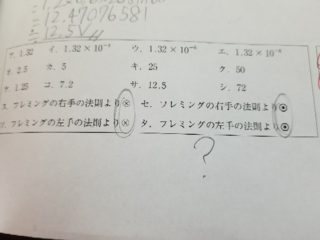 = 12.47076581
≒ 12.5
ア. 1.32 イ. 1.32×10⁻⁴ ウ. 1.32×10⁻⁶ エ. 1.32×10⁻⁸
オ. 2.5 カ. 5 キ. 25 ク. 50
ケ. 1.25 コ. 7.2 サ. 12.5 シ. 72
ス. フレミングの右手の法則より⊗ セ. フレミングの右手の法則より⊙
ソ. フレミングの左手の法則より⊗ タ. フレミングの左手の法則より⊙
?